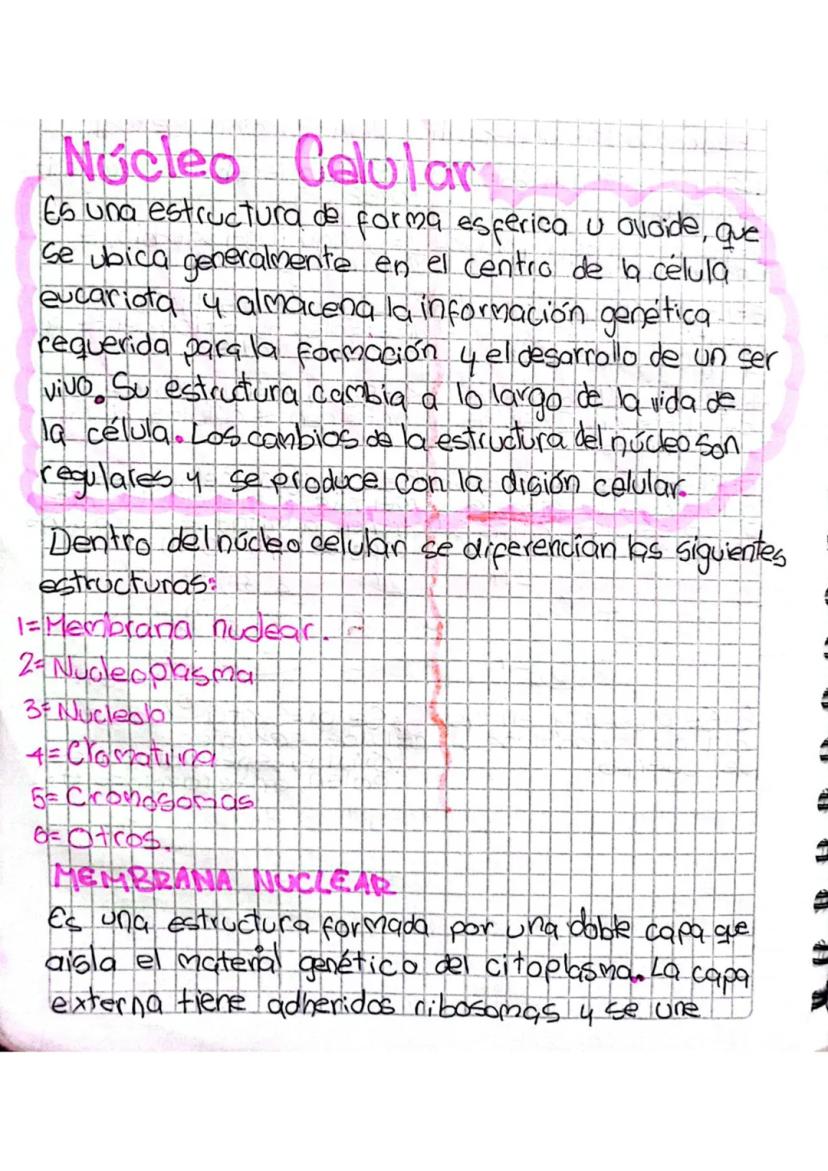 Núcleo Celular
Es una estructura de forma esferica u ovoide, que
se ubica generalmente en el centro de la célula
eucariota y almacena la información genética
requerida para la formación y el desarrollo de un ser
vivo. Su estructura cambia a lo largo de la vida de
la célula. Los cambios de la estructura del núcleo son
regulares y se produce con la disión celular.
Dentro del núcleo celular se diferencian las siguientes
estructuras:
1= Membrana nuclear.
2= Nucleoplasma
3= Nucleolo
4= Cromatina
5= Cronosomas
6= Otros.
MEMBRANA NUCLEAR
Es una estructura formada por una doble capa que
aisla el material genético del citoplasma. La capa
externa tiene adheridos ribosomas y se une